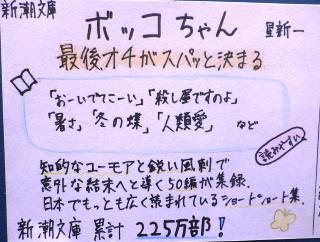 新潮文庫 ボッコちゃん 星新一
最後オチがスパッと決まる
「おーいでてこーい」「殺し屋ですのよ」
「暑さ」「冬の蝶」「人類愛」 など
読みやすい
知的なユーモアと鋭い風刺で
意外な結末へと導く50編が集録。
日本でもっとも広く読まれているショートショート集。
新潮文庫 累計 225万部!